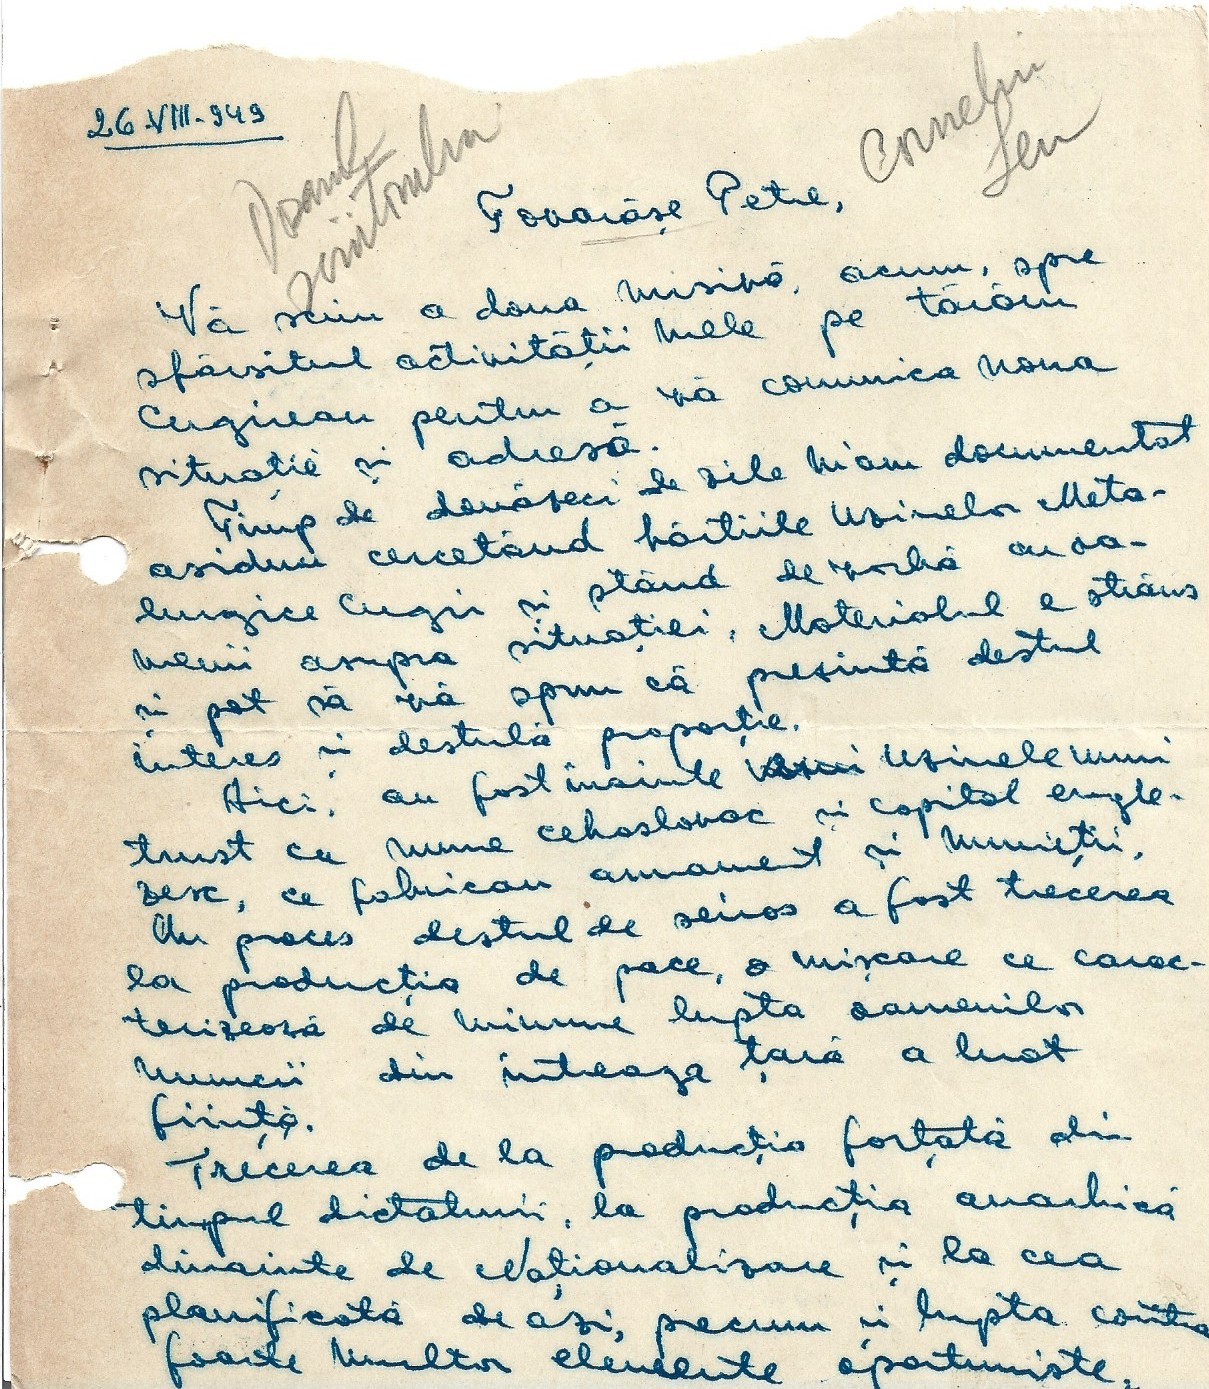 26.VIII.949
Dosarul
scriitorului
Corneliu
Leu
Tovarășe Petre,
Vă scriu a doua misivă, acum, spre
sfârsitul activității mele pe tărâm
Cugirean pentru a vă comunica noua
situație și adresă.
Timp de douăzeci de zile m'am documentat
asiduu cercetând hârtiile Uzinelor Meta-
lurgice Cugir și stând de vorbă cu oa-
menii asupra situației. Materialul e strâns
și pot să vă spun că prezintă destul
interes și destulă proporție.
Aici, au fost înainte Uzinele unui
trust cu nume cehoslovac și capital engle-
zesc, ce fabricau armament și muniții.
Un proces destul de serios a fost trecerea
la producția de pace, o mișcare ce carac-
terizează de minune lupta oamenilor
muncii din întreaga țară a luat
ființă.
Trecerea de la producția forțată din
timpul dictaturii, la producția anarhică
dinainte de Naționalizare și la cea
planificată de azi, precum și lupta contra
foarte multor elemente oportuniste,